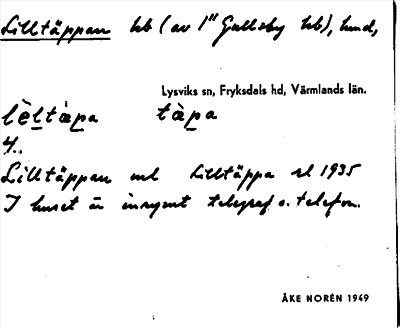 Lilltäppan hb (av 1" Gullsby hb), hmd,
Lysviks sn, Fryksdals hd, Värmlands län.
lèltàpa tàpa
4..
Lilltäppan ml Lilltäppa rl 1935
I huset är inrymt telegraf o. telefon.
ÅKE NORÉN 1949